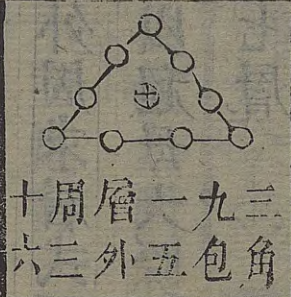 三角
九包
一五
層外
周三
十六